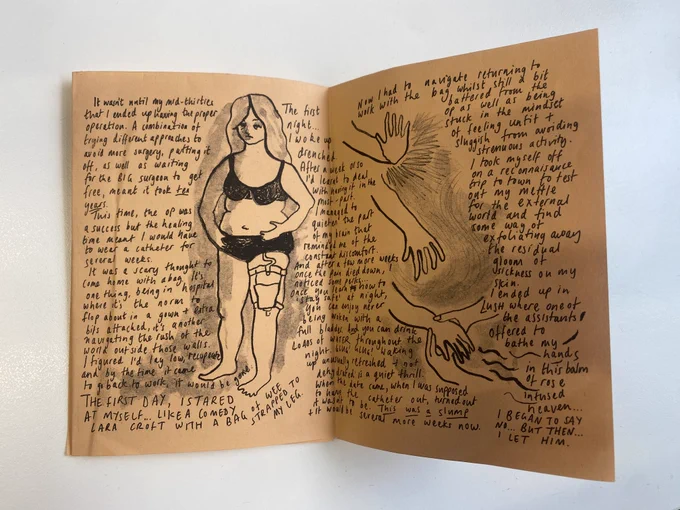 It wasn't until my mid-thirties
that I ended up having the proper
operation. A combination of
trying different approaches to
avoid more surgery, putting it
off, as well as waiting
for the BIG surgeon to get
free, meant it took ten
years.
This time, the op was
a success but the healing
time meant I would have
to wear a catheter for
several weeks.
It was a scary thought to
come home with a bag. It's
one thing, being in hospital
where it's the norm to
flop about in a gown + extra
bits attached, it's another
navigating the rush of the
world outside those walls.
I figured I'd lay low, recuperate
and by the time it came
to go back to work, it would be gone
THE FIRST DAY, I STARED
AT MYSELF... LIKE A COMEDY
LARA CROFT WITH A BAG OF WEE
STRAPPED TO
MY LEG.
The first
night...
I woke up
drenched.
After a week or so
I'd learnt to deal
with having it in the
most part.
I managed to
quieten the part
of my brain that
reminded me of the
constant discomfort.
And after a few more weeks,
once the pain died down, I
noticed some perks.
Once you learn how to
'stay safe' at night,
you can enjoy never
being woken with a
full bladder. And you can drink
LOADS of water throughout the
night. Bliss! Waking
unusually refreshed + not
dehydrated is a quiet thrill.
When the date came, when I was supposed
to have the catheter out, turned out
it wasn't to be. This was a slump
it would be several more weeks now.
Now I had to navigate returning to
work with the bag whilst still a bit
battered from the
op as well as being
stuck in the mindset
of feeling unfit +
sluggish from avoiding
strenuous activity.
I took myself off
on a reconnaisance
trip to town to test
out my mettle
for the external
world and find
some way of
exfoliating away
the residual
gloom of
sickness on my
skin.
I ended up in
LUSH where one of
the assistants
offered to
bathe my
hands
in this balm
of rose
infused
heaven...
I BEGAN TO SAY
NO... BUT THEN...
I LET HIM.